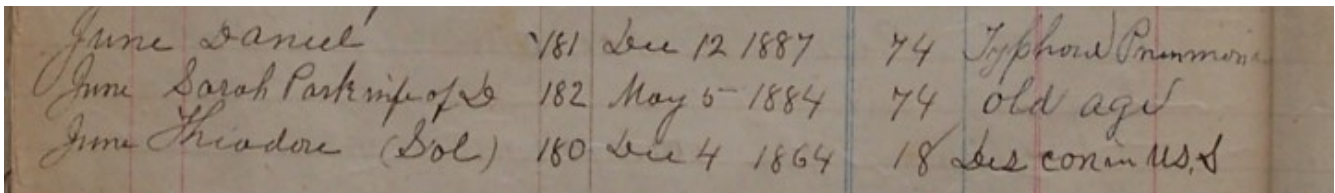 June Daniel 181 Dec 12 1887 74 Typhoid Pneumonia
June Sarah Park wife of D 182 May 5 1884 74 old age
June Theodore (Sol) 180 Dec 4 1864 18 Des con in U.S.